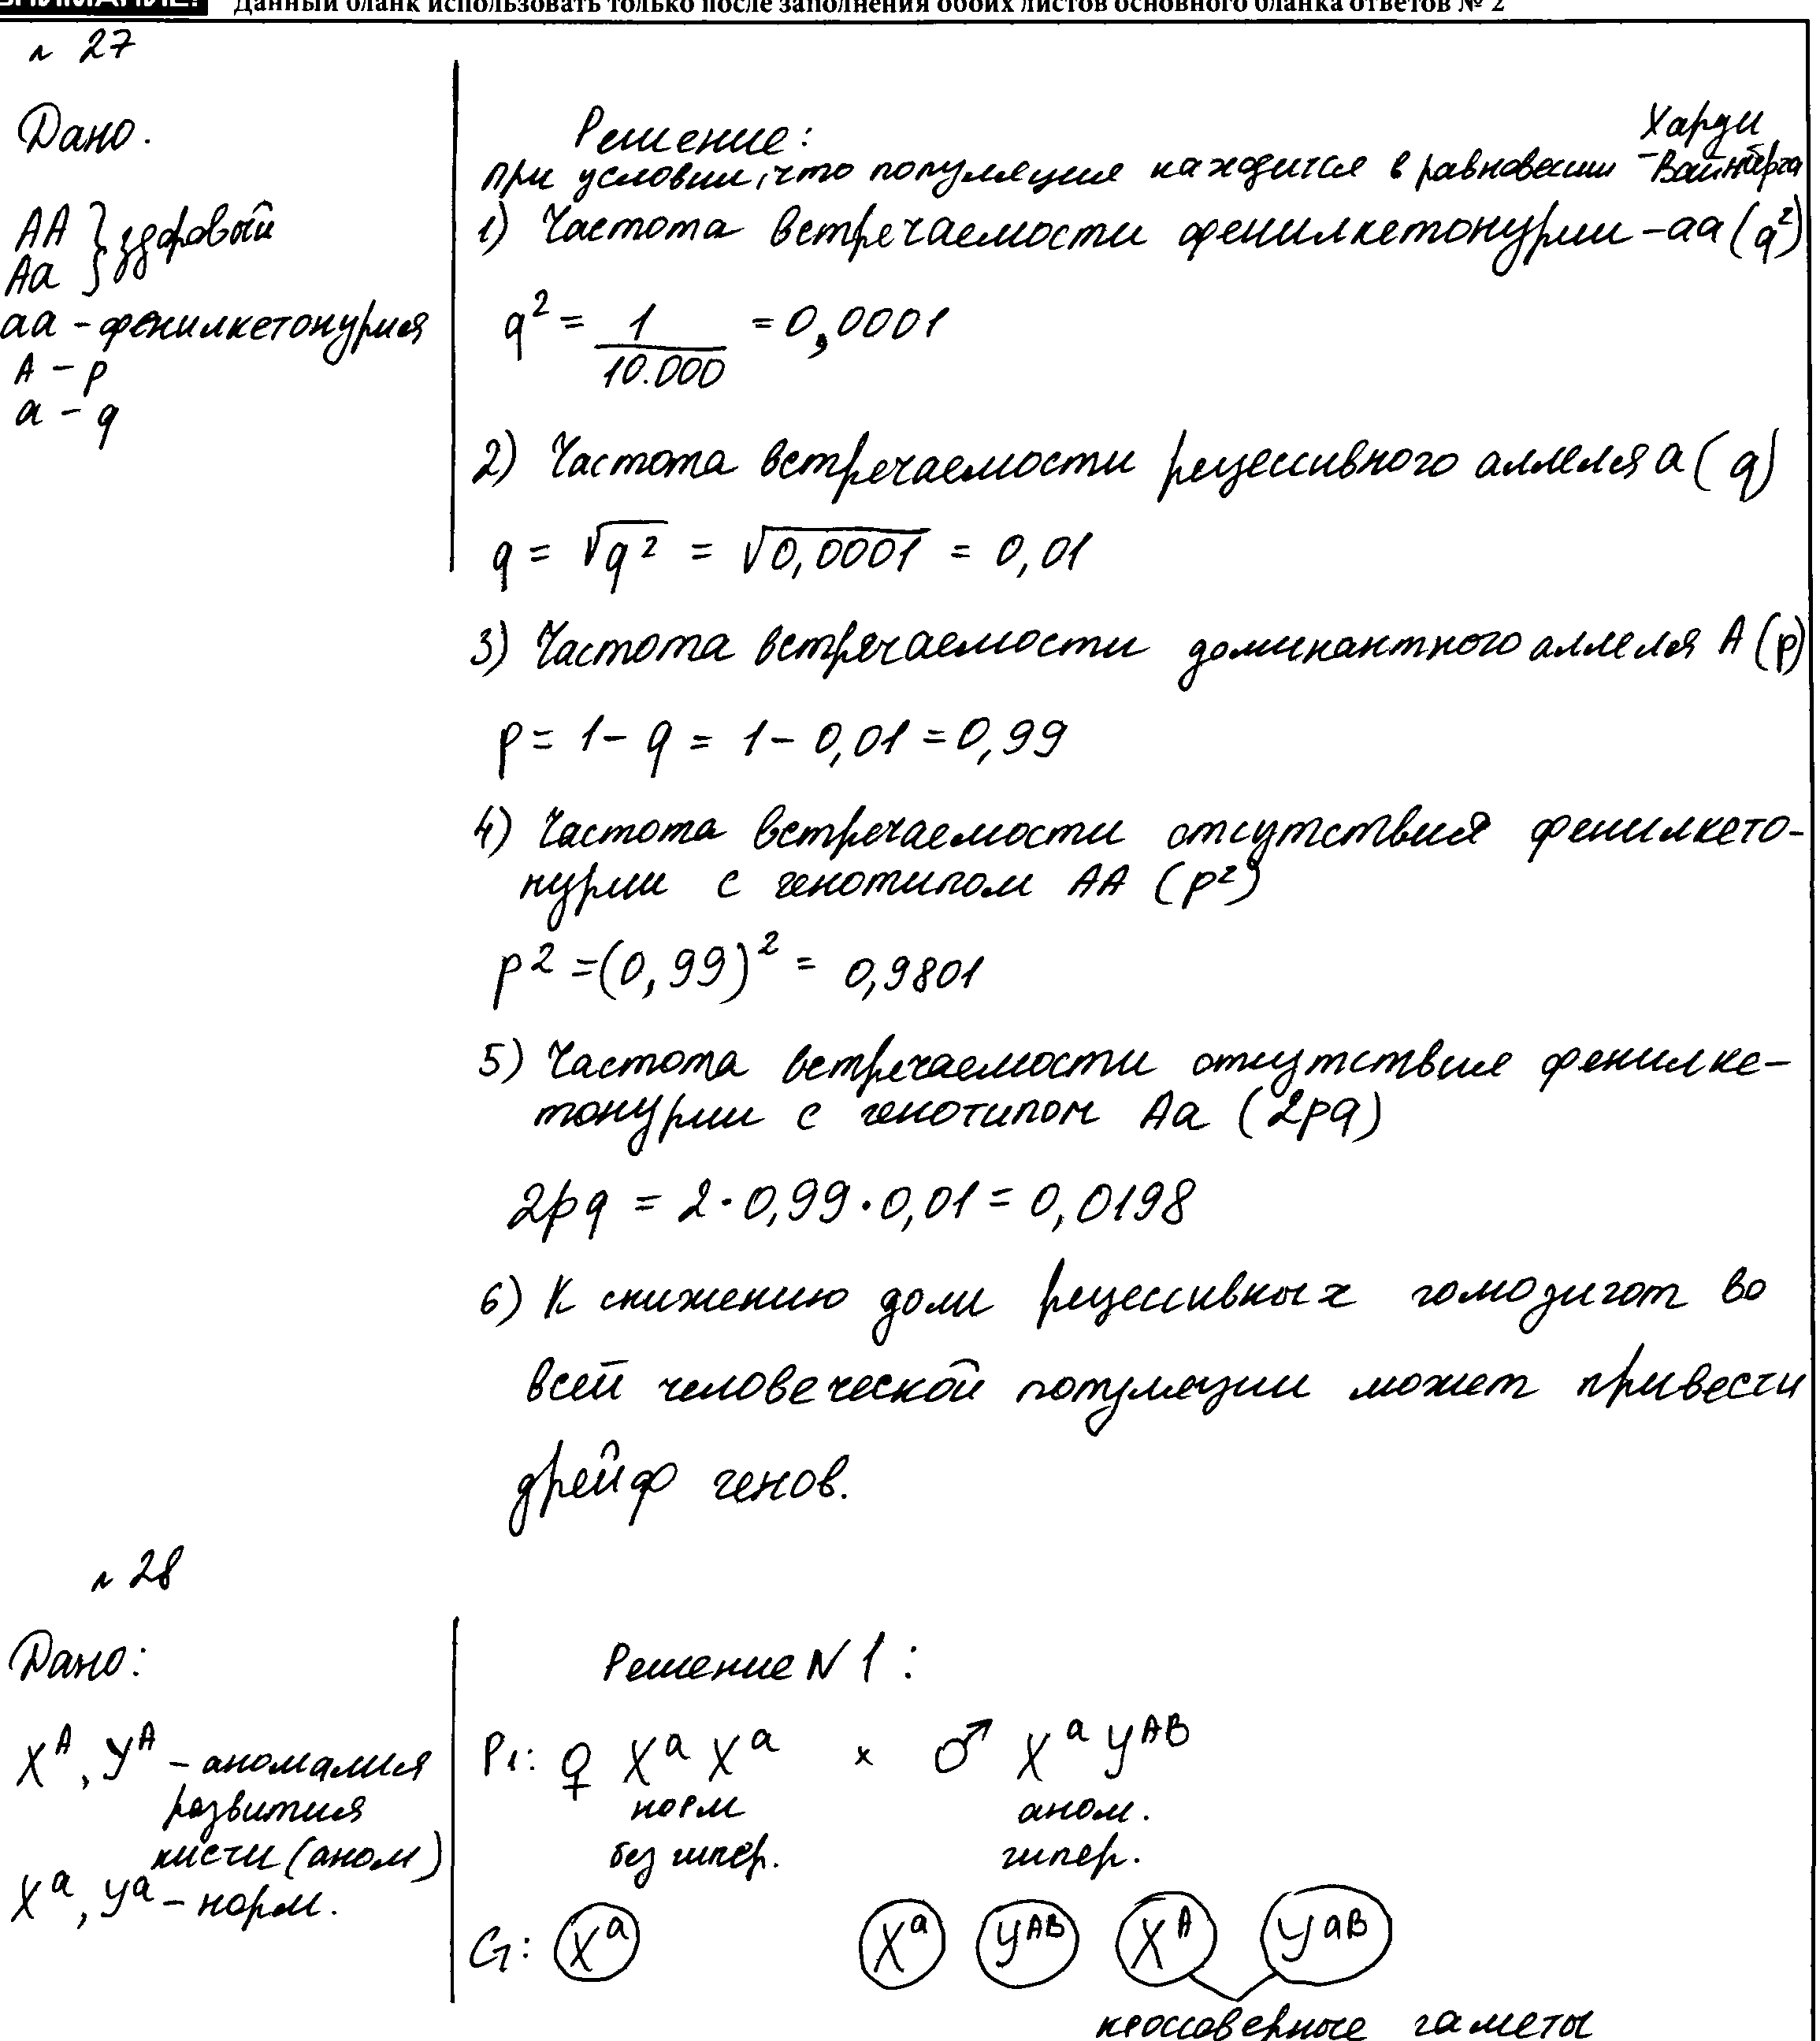 ВНИМАНИЕ! Данный бланк использовать только после заполнения обоих листов основного бланка ответов № 2
№ 27
Дано.
АА } здоровый
Аа
аа - фенилкетонурия
А - p
а - q
Решение:
при условии, что популяция находится в равновесии Харди-Вайнберга
1) Частота встречаемости фенилкетонурии - аа (q²)
q² = 1/10.000 = 0,0001
2) Частота встречаемости рецессивного аллеля а (q)
q = √q² = √0,0001 = 0,01
3) Частота встречаемости доминантного аллеля А (p)
p = 1 - q = 1 - 0,01 = 0,99
4) Частота встречаемости отсутствия фенилкето-
нурии с генотипом АА (p²)
p² = (0,99)² = 0,9801
5) Частота встречаемости отсутствия фенилке-
тонурии с генотипом Аа (2pq)
2pq = 2 · 0,99 · 0,01 = 0,0198
6) К снижению доли рецессивных гомозигот во
всей человеческой популяции может привести
дрейф генов.
№ 28
Дано:
Xᴬ, Yᴬ - аномалия
развития
кисти (аном)
Xᵃ, Yᵃ - норм.
Решение N 1 :
P₁: ♀ Xᵃ Xᵃ × ♂ Xᵃ Yᴬᴮ
норм аном.
без гипер. гипер.
G: Xᵃ Xᵃ Yᴬᴮ Xᴬ Yᵃᴮ
кроссоверные гаметы